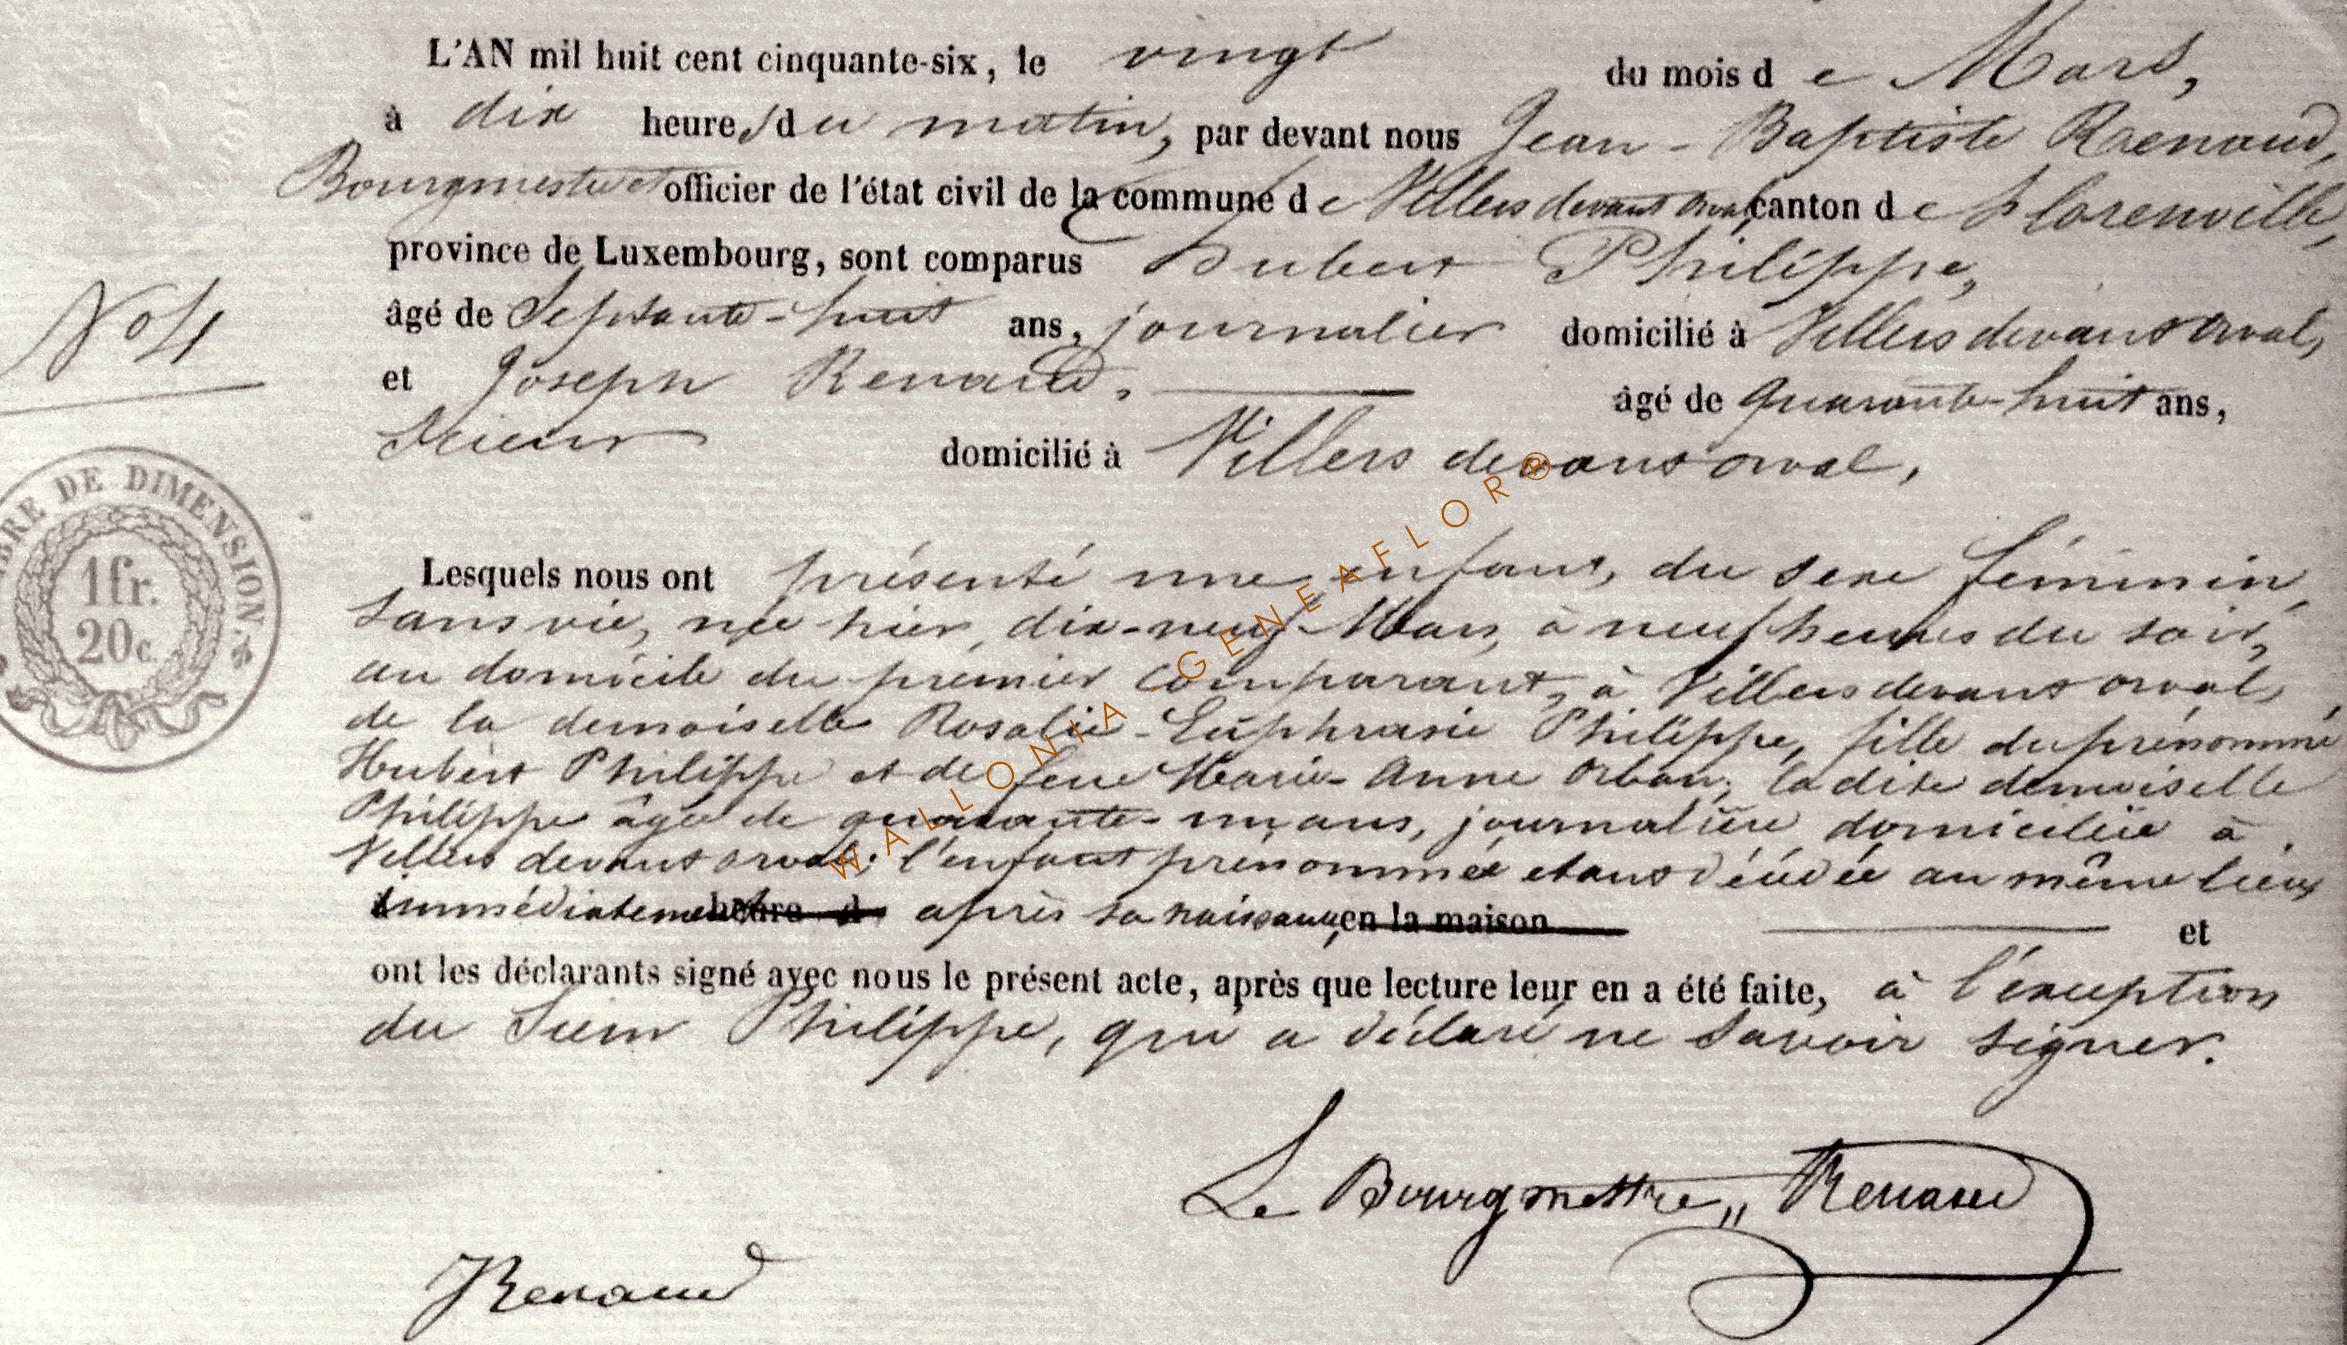 L'AN mil huit cent cinquante-six, le vingt du mois de Mars,
à dix heures du matin, par devant nous Jean-Baptiste Renaud,
Bourgmestre et officier de l'état civil de la commune de Villers devant orval, canton de Florenville,
province de Luxembourg, sont comparus Hubert Philippe,
âgé de Septante-huit ans, journalier domicilié à Villers devant orval,
N° 4
et Joseph Renaud, âgé de quarante-huit ans,
Scieur domicilié à Villers devant orval,
TIMBRE DE DIMENSION.
1fr.
20c.
Lesquels nous ont présenté une enfant, du sexe féminin,
sans vie, née hier, dix-neuf Mars, à neuf heures du soir,
au domicile du premier comparant, à Villers devant orval,
de la demoiselle Rosalie-Euphrasie Philippe, fille du prénommé
Hubert Philippe et de feue Marie-Anne Orban, la dite demoiselle
Philippe âgée de quarante-un ans, journalière domiciliée à
Villers devant orval; l'enfant prénommée étant décédée au même lieu
immédiatement heure d après sa naissance, en la maison et
ont les déclarants signé avec nous le présent acte, après que lecture leur en a été faite, à l'exception
du Sieur Philippe, qui a déclaré ne savoir signer.
Le Bourgmestre,, Renaud
Renaud
WALLONIA GENEAFLOR®